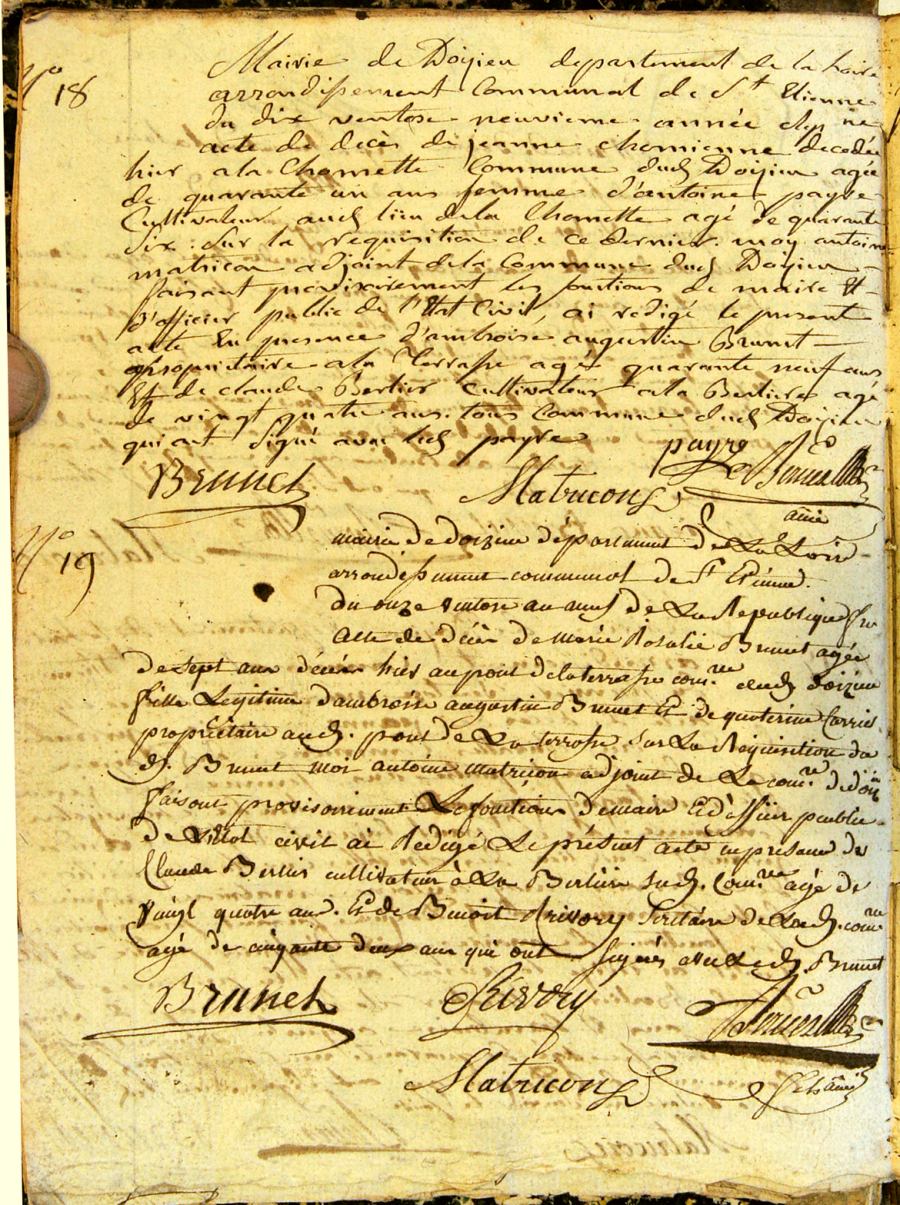 N° 18
Mairie de Doizieu departement de la Loire
arrondissement Communal de St Etienne
du dix ventose neuvieme année
acte de décès de jeanne chomienne decedée
hier a la Chomette Commune dud Doizieu agée
de quarante un ans femme d'antoine payre
Cultivateur aud lieu de la Chomette agé de quarante
six : sur la requisition de ce dernier. moy antoine
matricon adjoint de la Commune dud Doizieu
faisant provisoirement les fonctions de maire Et
d'officier public de l'Etat Civil, ai rédigé le present
acte En presence d'ambroise augustin Brunet
propriétaire a la Terrasse agé quarante neuf ans
Et de claude Bertier Cultivateur a la Bertiere agé
de vingt quatre ans. tous Commune dud Doizieu
qui ont signé avec led payre payre
Brunet Matricon
N° 19
mairie de doizieu département de La Loire
arrondissement communal de St Etienne.
du onze ventose an neuf de La Republique fr
acte de décès de marie Rosalie Brunet agée
de sept ans décédée hier au pont de la terrasse com.ne dud doizieu
fille Legitime d'ambroise augustin Brunet Et de
propriétaire aud. pont de La terrasse sur La Requisition du
d. Brunet moi antoine matricon adjoint de La com.ne de doi
faisant provisoirement Les fonctions de maire Et d'officier public
de L'Etat civil ai Rédigé Le présent acte en présence de
Claude Bertier cultivateur à La Bertiere sud. Com.ne agé de
vingt quatre ans. Et de Benoit Privory de Lad. com.ne
agé de cinquante deux ans qui ont signés avec Led. Brunet
Brunet
Matricon